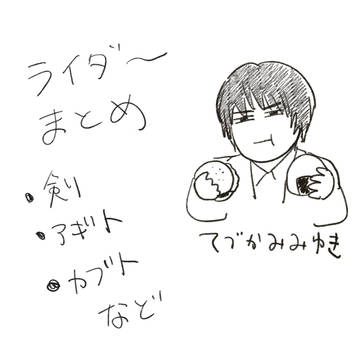 ライダ〜
まとめ
・剣
・アギト
・カブト
など
てづかみみゆき